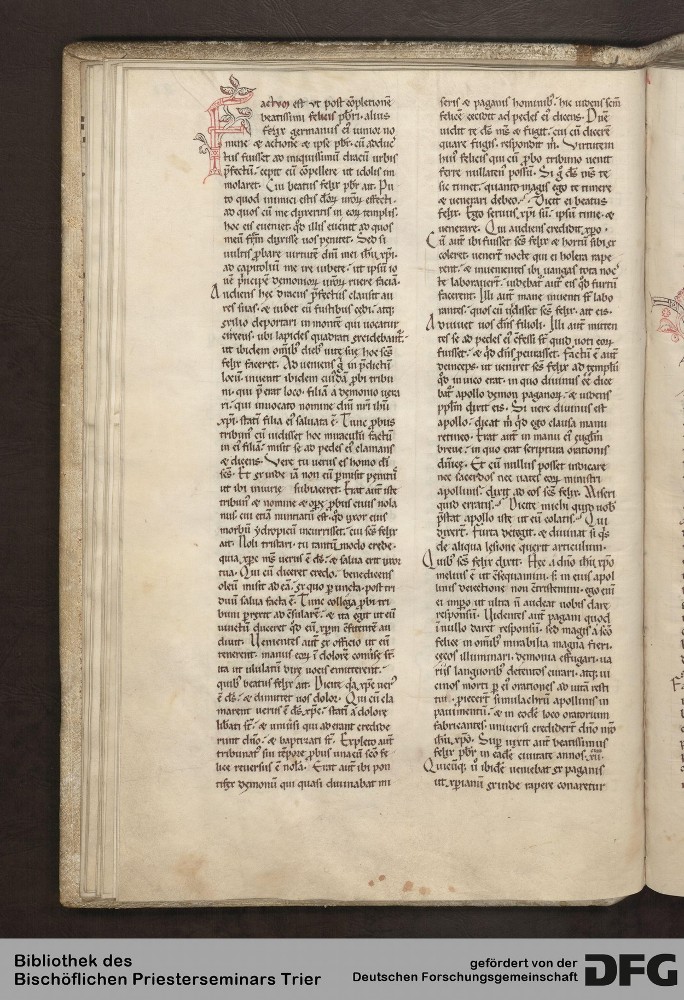 Factum est vt post cõpletionẽ
beatissimi felicis p̄bri. alius
felix germanus eiꝰ iunior no
mine ⁊ actione ⁊ ipse p̄br. cũ adduc
tus fuisset ad iniquissimũ dracũ urbis
p̄fectũ. cepit eũ cõpellere ut idolis im
molaret. Cui beatus felix p̄br ait.
to quod inimici estis
ad quos cũ me dixeritis in eoꝝ templis.
hoc eis eueniet. qd̓ illis euenit ad quos
meũ fr̄em duxisse uos penitet. Sed si
uultis p̱bare uirtutẽ dñi mei ihũ xp̄i.
ad capitoliũ me ire iubete. ut ipsũ io
uẽ p̄ncipẽ demonioꝝ ruere faciã.
Audiens hec dracus p̄fectus clausit au
res suas. ⁊ iubet eũ fustibus cedi. atq;
exilio deportari in montẽ qui uocatur
circeus. ubi lapides quadrati excidebant̃.
ut ibidem om̃ib; dieb; uite sue hoc sc̄s
felix faceret. Ad ueniens g̊ in p̄dictũ
locũ. inuenit ibidem cuiꝰdã p̱bi tribu
ni. qui p̄erat loco. filiã a demonio uexa
ri. qui inuocato nomine dñi nr̄i ihũ
xp̄i. statĩ filia eiꝰ saluata ẽ. Tunc p̱bus
tribunꝰ cũ uidisset hoc miraculũ factũ
in eiꝰ filia. misit se ad pedes eiꝰ clamans
⁊ dicens. Vere tu uerus es homo dĩ
sc̄s. Et exinde iã non eũ p̄misit penitꝰ
ut ibi iniurie subiaceret. Erat aut̃ iste
tribunꝰ ⁊ nomine ⁊ ope p̱bus
cui etiã nuntiatũ est. qd̓ uxor eius
morbũ ydropicũ incurrisset. cui sc̄s felix
ait. Noli tristari. tu tantũ modo crede.
quia xp̄c ms̃ uerus ẽ ds̃. ⁊ salua erit uxor
tua. Qui cũ diceret credo. benedicens
oleũ misit ad eã. ex quo p̱uncta. post tri
duũ salua facta ẽ. Tunc collega p̱bi tri
buni ad cõsularẽ. ⁊ ita egit ut eũ
uinctũ duceret qd̓ eũ xp̄m cõfitentẽ au
diuit. Uenientes aut̃ ex officio ut eũ
tenerent. manus eoꝝ ĩ dolorẽ uerse st̃.
ita ut ululatũ dire uocis emitterent.
quib; beatus felix ait. Dicite q̱a xp̄c ueꝰ
ẽ ds̃. ⁊ dimittet uos dolor. Qui cũ cla
marent uerus ẽ ds̃ xp̄c. statĩ a dolore
libati st̃. ⁊ uniũsi qui ad erant credide
runt dño. ⁊ baptizati st̃. Expleto aut̃
tribunatꝰ sui tẽpore p̱bus una cũ sc̄o fe
lice reuersus ẽ nola. Erat aut̃ ibi pon
tifex demonũ qui quasi diuinabat mi
seris ⁊ paganis hominib;. hic uidens sc̄m
felicẽ cecidit ad pedes eiꝰ dicens. Dũc
uidit te ds̃ ms̃ ⁊ fugit. cui cũ dicerẽ
quare fugis. respondit m̃. Virtutem
huiꝰ felicis qui cũ p̱bo tribuno uenit
ferre nullatenꝰ possũ. Si g̊ ds̃ ms̃ te
sic timet. quanto magis ego te timere
⁊ uenerari debeo. Dicit ei beatus
felix. Ego seruus xp̄i sũ. ipsũ time. ⁊
uenerare. Qui audiens credidit xp̄o.
Cũ aut̃ ibi fuisset sc̄s felix ⁊ hortũ sibi ex
coleret. uener̃t nocte qui ei holera rape
rent. ⁊ inuenientes ibi uangas tota noc
te laborauer̃t. uidebat̃ aut̃ eis qd̓ furtũ
facerent. Illi aut̃ mane inuenti st̃ labo
rantes. quos cũ uidisset sc̄s felix. ait eis.
Adiuuet uos dñs filioli. Illi aut̃ mitten
tes se ad pedes eiꝰ cõfessi st̃ quid uoti eoꝝ
fuisset. ⁊ qd̓ dñs prestasset. Factũ ẽ aut̃
deinceps. ut ueniret sc̄s felix ad templũ
qd̓ in uico erat. in quo diuinus ẽẽ dice
bat̃ apollo demon paganoꝝ. ⁊ uidens
pp̱lm dixit eis. Si uere diuinus est
apollo. dicat m̃ qd̓ ego clausa manu
retineo. Erat aut̃ in manu eiꝰ
breue. in quo erat scriptura orationis
dñice. Et cũ nullus posset indicare
nec sacerdos nec uates eoꝝ ministri
apollinis. dixit ad eos sc̄s felix. Miseri
quid erratis. Dicite michi quid uob̓
p̄stat apollo iste ut eũ colatis. Qui
dixer̃t. Furta detegit. ⁊ diuinat si q̱s
de aliqua lesione querit articulum.
Quib; sc̄s felix dixit. Hec a dño ihũ xp̄o
meliũs ẽ ut cõsequamini. s; in eius apol
linis deuotione non tristemini. ego enĩ
ei imp̱o ut ultra ñ audeat uobis dare
responsũ. Uidentes aut̃ pagani quod
ĩ nullo daret responsũ. sed magis a sc̄o
felice in om̃ib; mirabilia magna fieri.
cecos illuminari. demonia effugari. ua
riis languorib; detentos curari. atq; ui
cinos morti p̱ eiꝰ orationes ad uitã resti
tui. p̱iecer̃t similachrũ apollinis in
pauimentũ. ⁊ in eodẽ loco oratorium
fabricantes. uniuersi crediderẽt dño nr̃o
ihũ xp̄o. Sup̱ uixit aut̃ beatissimus
felix p̄br in eadẽ ciuitate annos. xii.
Quicũq; ñ ibidẽ ueniebat ex paganis
ut xp̄ianũ exinde rapere conaretur
Bibliothek des
Bischöflichen Priesterseminars Trier
gefördert von der
Deutschen Forschungsgemeinschaft
DFG